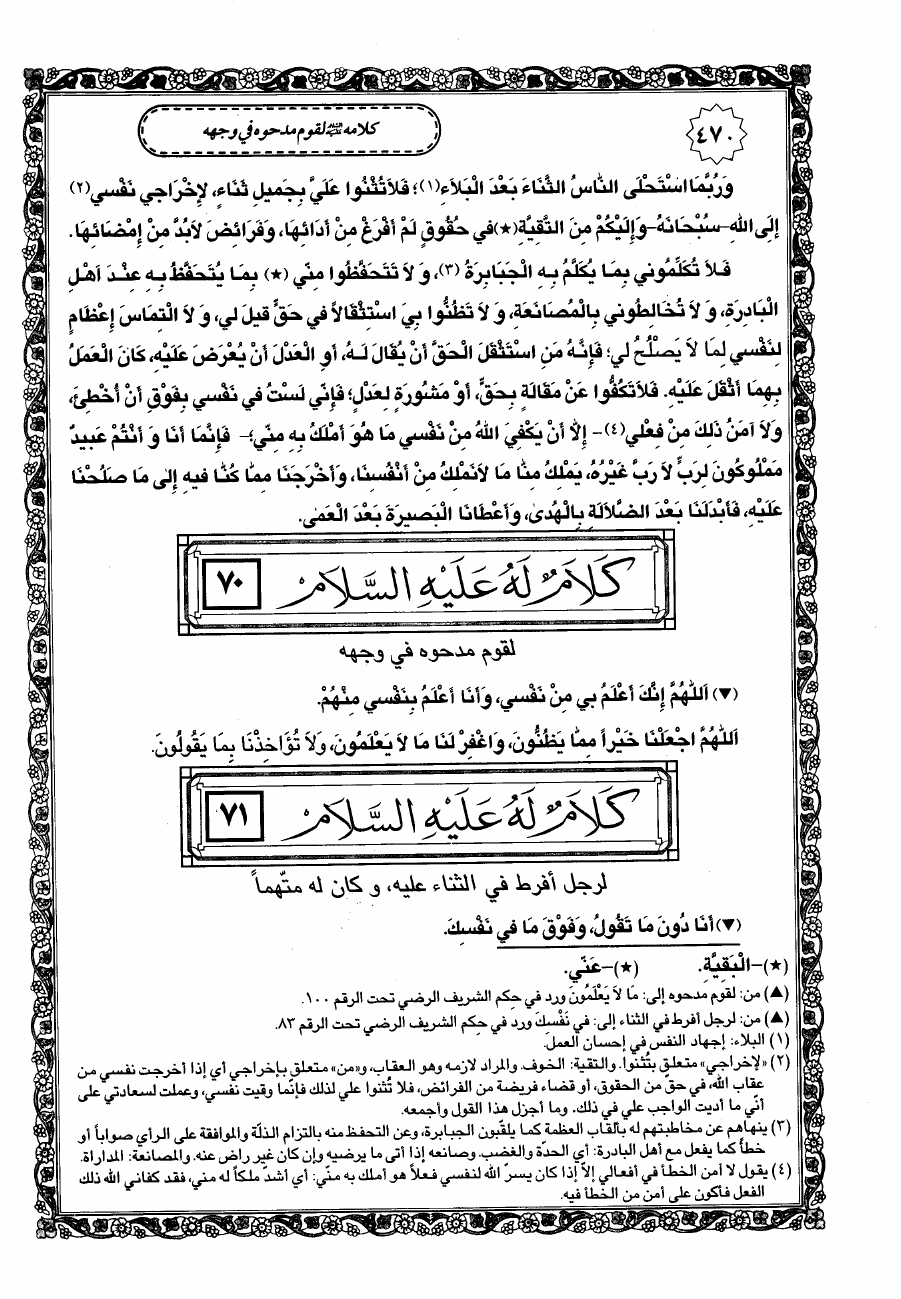 ٤٧٠
كلامه عليه السلام لقوم مدحوه في وجهه
وَرُبَّمَا اسْتَحْلَى النَّاسُ الثَّنَاءَ بَعْدَ الْبَلاَءِ(١)؛ فَلاَ تُثْنُوا عَلَيَّ بِجَميلِ ثَنَاءٍ، لإِخْرَاجي نَفْسي(٢)
إِلَى اللهِ-سُبْحَانَهُ-وَإِلَيْكُمْ مِنَ التَّقِيَّةِ(★)في حُقُوقٍ لَمْ أَفْرَغْ مِنْ أَدَائِهَا، وَفَرَائِضَ لاَبُدَّ مِنْ إِمْضَائِهَا.
فَلاَ تُكَلِّمُوني بِمَا يُكَلَّمُ بِهِ الْجَبَابِرَةُ(٣)، وَ لاَ تَتَحَفَّظُوا مِنّي (★) بِمَا يُتَحَفَّظُ بِهِ عِنْدَ أَهْلِ
الْبَادِرَةِ، وَ لاَ تُخَالِطُوني بِالْمُصَانَعَةِ، وَ لاَ تَظُنُّوا بِيَ اسْتِثْقَالاً في حَقٍّ قيلَ لي، وَ لاَ الْتِمَاسَ إِعْظَامٍ
لِنَفْسي لِمَا لاَ يَصْلُحُ لي؛ فَإِنَّهُ مَنِ اسْتَثْقَلَ الْحَقَّ أَنْ يُقَالَ لَهُ، أَوِ الْعَدْلَ أَنْ يُعْرَضَ عَلَيْهِ، كَانَ الْعَمَلُ
بِهِمَا أَثْقَلَ عَلَيْهِ. فَلاَتَكُفُّوا عَنْ مَقَالَةٍ بِحَقٍّ، أَوْ مَشُورَةٍ لِعَدْلٍ؛ فَإِنّي لَسْتُ في نَفْسي بِفَوْقِ أَنْ أُخْطِئَ،
وَلاَ آمَنُ ذَلِكَ مِنْ فِعْلي(٤)- إِلاَّ أَنْ يَكْفِيَ اللهُ مِنْ نَفْسي مَا هُوَ أَمْلَكُ بِهِ مِنّي؛- فَإِنَّمَا أَنَا وَ أَنْتُمْ عَبيدٌ
مَمْلُوكُونَ لِرَبٍّ لاَ رَبَّ غَيْرُهُ، يَمْلِكُ مِنَّا مَا لاَنَمْلِكُ مِنْ أَنْفُسِنَا، وَأَخْرَجَنَا مِمَّا كُنَّا فيهِ إِلى مَا صَلُحْنَا
عَلَيْهِ، فَأَبْدَلَنَا بَعْدَ الضَّلاَلَةِ بِالْهُدىٰ، وَأَعْطَانَا الْبَصيرَةَ بَعْدَ الْعَمىٰ.
كَلَامٌ لَهُ عَلَيْهِ السَّلَامُ ٧٠
لقوم مدحوه في وجهه
(▼) اَللّٰهُمَّ إِنَّكَ أَعْلَمُ بي مِنْ نَفْسي، وَأَنَا أَعْلَمُ بِنَفْسي مِنْهُمْ.
اَللّٰهُمَّ اجْعَلْنَا خَيْراً مِمَّا يَظُنُّونَ، وَاغْفِرْ لَنَا مَا لاَ يَعْلَمُونَ، وَلاَ تُؤَاخِذْنَا بِمَا يَقُولُونَ.
كَلَامٌ لَهُ عَلَيْهِ السَّلَامُ ٧١
لرجل أفرط في الثناء عليه، و كان له متّهماً
(▼)أَنَا دُونَ مَا تَقُولُ، وَفَوْقَ مَا في نَفْسِكَ.
(★)-الْبَقِيَّةِ. (★)-عَنّي.
(▲) من: لقوم مدحوه إلى: مَا لاَ يَعْلَمُونَ ورد في حكم الشريف الرضي تحت الرقم ١٠٠.
(▲) من: لرجل أفرط في الثناء إلى: في نَفْسِكَ ورد في حِكم الشريف الرضي تحت الرقم ٨٣.
(١) البلاء: إجهاد النفس في إحسان العمل.
(٢) «لإخراجي» متعلق بتُثنوا. والتقية: الخوف. والمراد لازمه وهو العقاب، و«من» متعلق بإخراجي أي إذا أخرجت نفسي من
عقاب الله، في حقّ من الحقوق، أو قضاء فريضة من الفرائض، فلا تُثنوا علي لذلك فإنّما وقيت نفسي، وعملت لسعادتي على
أنّي ما أديت الواجب علي في ذلك. وما أجزل هذا القول وأجمعه.
(٣) ينهاهم عن مخاطبتهم له بألقاب العظمة كما يلقّبون الجبابرة، وعن التحفظ منه بالتزام الذلّة والموافقة على الرأي صواباً أو
خطأً كما يفعل مع أهل البادرة: أي الحدّة والغضب. وصانعه إذا أتى ما يرضيه وإن كان غير راض عنه. والمصانعة: المداراة.
(٤) يقول لا آمن الخطأ في أفعالي إلاّ إذا كان يسرّ الله لنفسي فعلاً هو أملك به منّي: أي أشدّ ملكاً له مني، فقد كفاني الله ذلك
الفعل فأكون على أمن من الخطأ فيه.